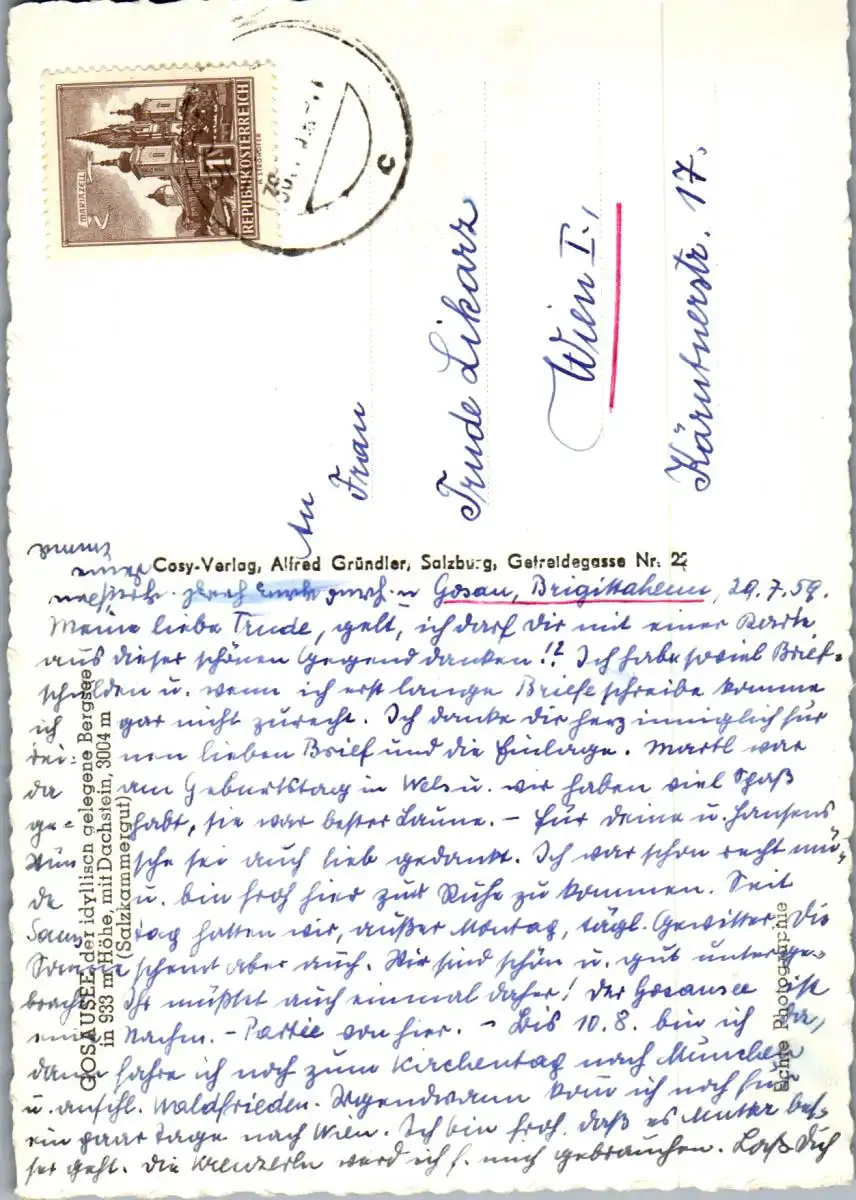 MARIAZELL
1
REPUBLIK ÖSTERREICH
An
Frau
Trude Likarz
Wien I.,
Kärntnerstr. 17.
Cosy-Verlag, Alfred Gründler, Salzburg, Getreidegasse Nr. 22
GOSAUSEE, der idyllisch gelegene Bergsee
in 933 m Höhe, mit Dachstein, 3004 m
(Salzkammergut)
Echte Photographie
Gosau, Brigittaheim, 29.7.59.
Meine liebe Trude, gelt, ich darf Dir mit einer Karte
aus dieser schönen Gegend danken!? Ich habe soviel Brief-
schulden u. wenn ich erst lange Briefe schreibe komme
ich gar nicht zurecht. Ich danke Dir herzinniglich für
Dei- nen lieben Brief und die Einlage. Martl war
da am Geburtstag in Wels u. wir haben viel Spaß
ge- habt, sie war bester Laune. – Für Deine u. Hansens
Wün sche sei auch lieb gedankt. Ich war schon recht mü-
de u. bin froh hier zur Ruhe zu kommen. Seit
Sams tag hatten wir, außer Montag, tägl. Gewitter. Die
Sonne scheint aber auch. Wir sind schön u. gut unterge-
bracht. Ihr müßtet auch einmal daher! Der Gosausee ist
eine Nachm. – Partie von hier. – Bis 10.8. bin ich da,
dann fahre ich noch zum Kirchentag nach München
u. anschl. Waldfrieden. Irgendwann komm ich noch für
ein paar Tage nach Wien. Ich bin froh, daß es Mutter bes-
ser geht. Die werd ich gebrauchen. Laß Dich